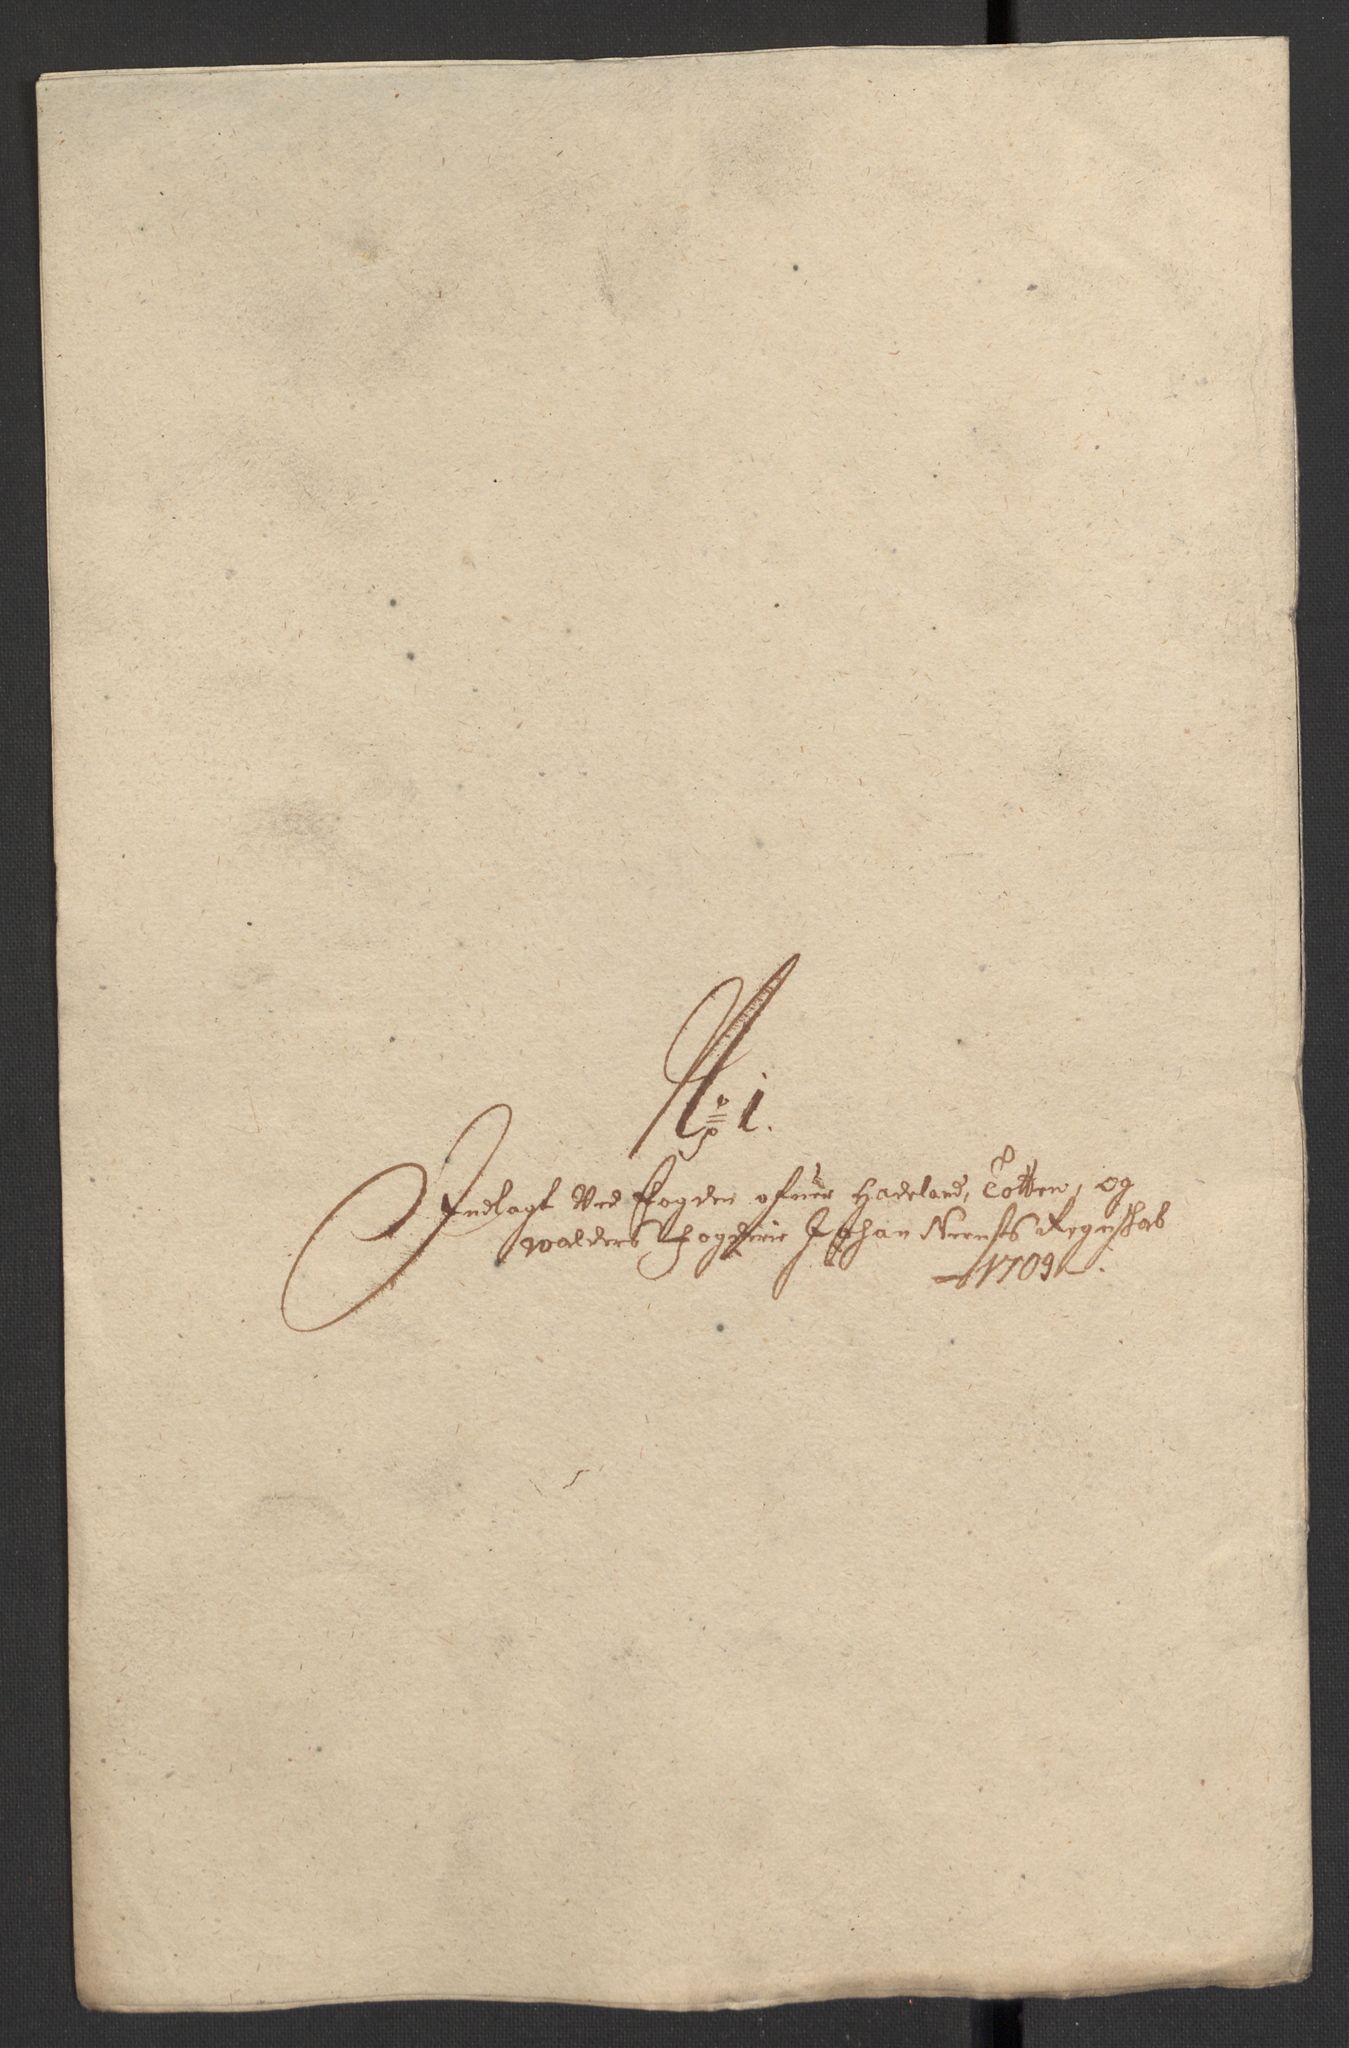 No i.
Indlagt Ved fogden ofuer Hadeland, Totten, og
Walders fogderie Johan Neenst Regnskab
1709.